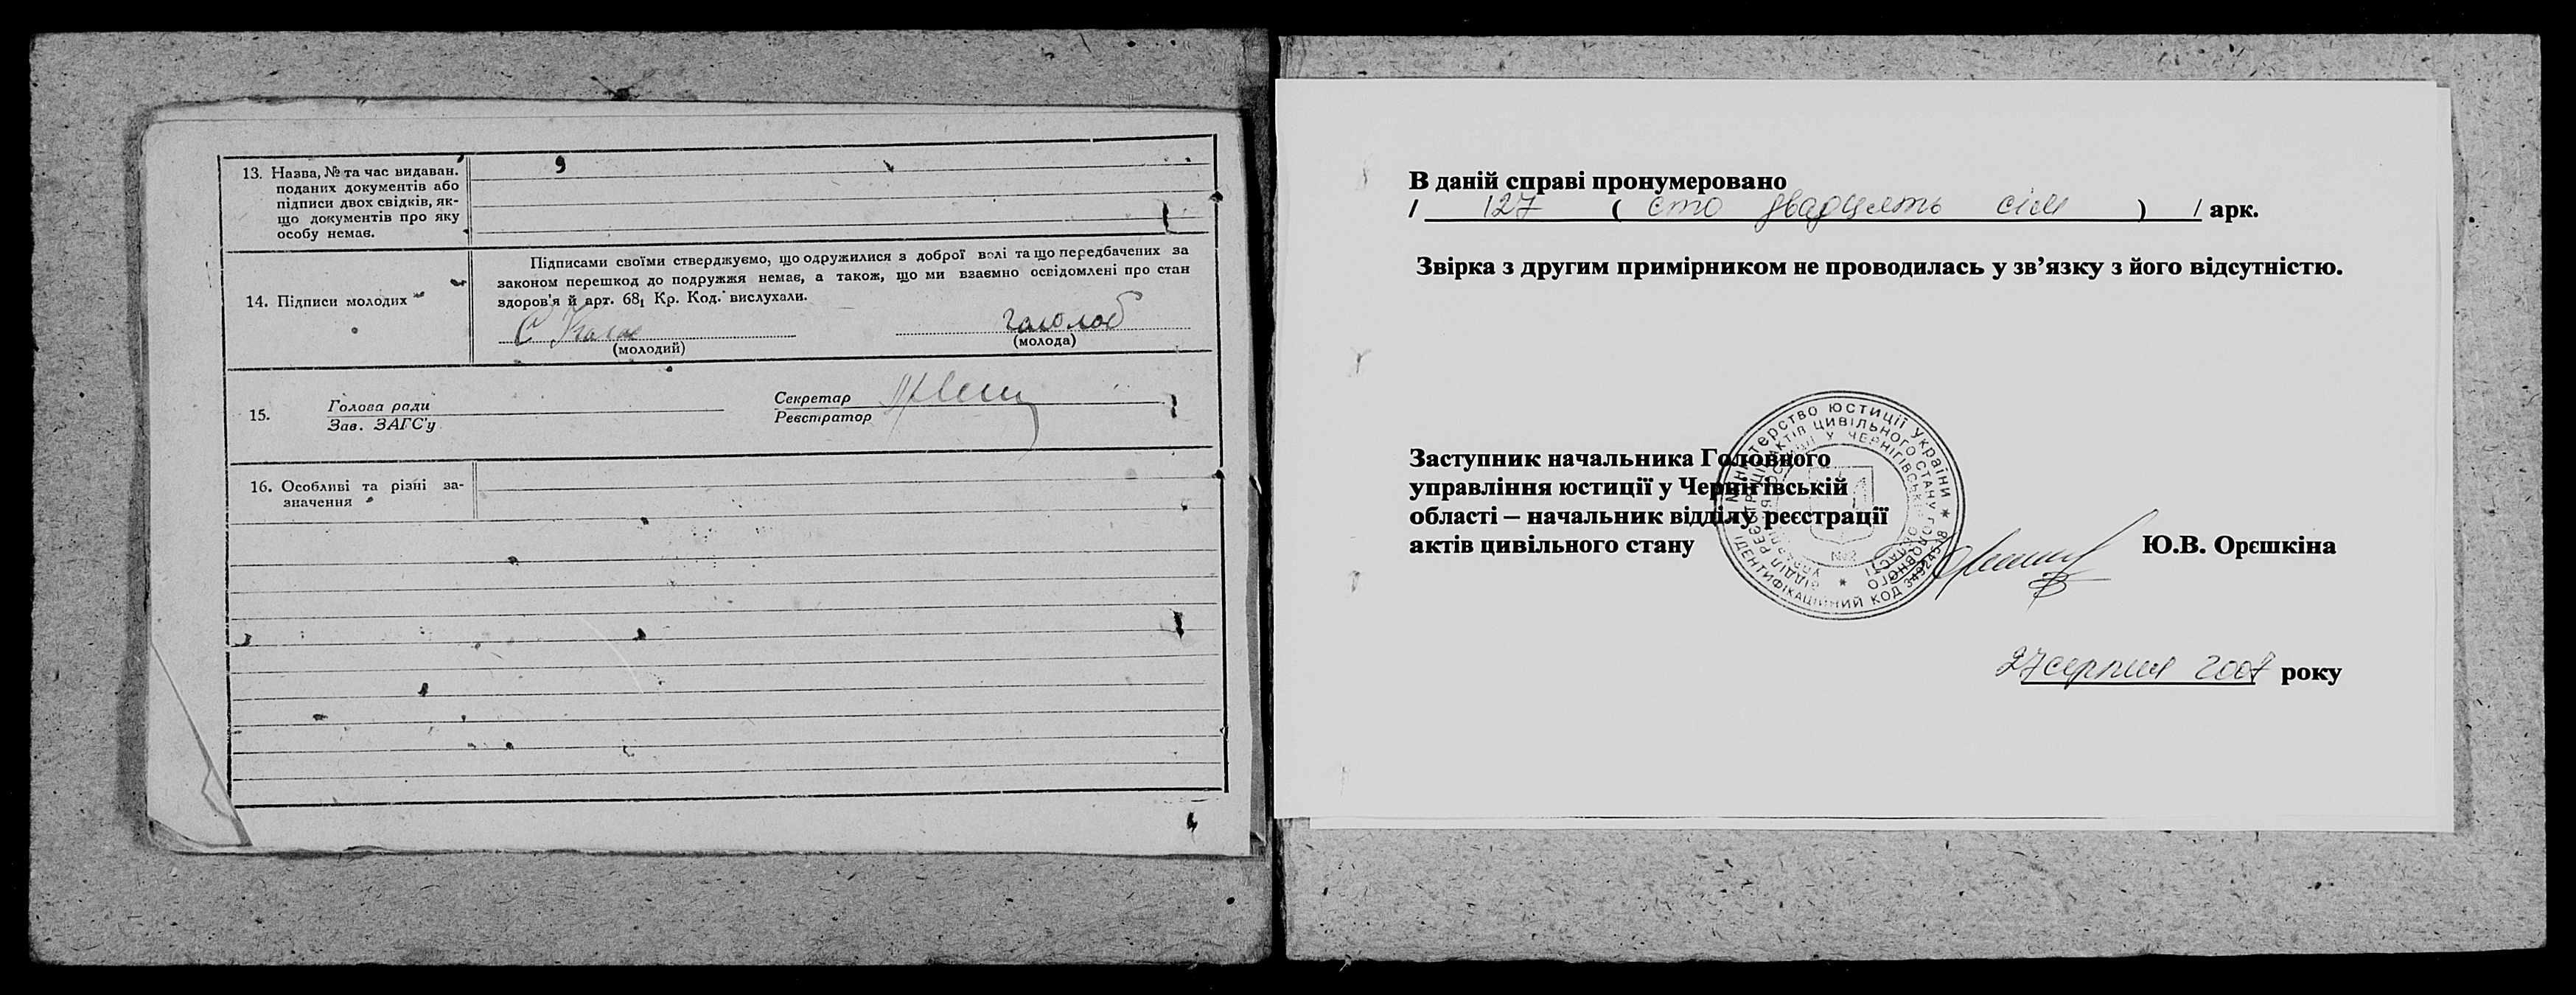 13. Назва, № та час видаван.
поданих документів або
підписи двох свідків, як-
що документів про яку
особу немає.
14. Підписи молодих
Підписами своїми стверджуємо, що одружилися з доброї волі та що передбачених за
законом перешкод до подружжя немає, а також, що ми взаємно освідомлені про стан
здоров'я й арт. 68₁ Кр. Код. вислухали.
(молодий)
(молода)
15.
Голова ради
Зав. ЗАГС'у
Секретар
Реєстратор
16. Особливі та різні за-
значення
В даній справі пронумеровано
/ 127 ( сто двадцять сім ) / арк.
Звірка з другим примірником не проводилась у зв’язку з його відсутністю.
Заступник начальника Головного
управління юстиції у Чернігівській
області – начальник відділу реєстрації
актів цивільного стану
Ю.В. Орєшкіна
МІНІСТЕРСТВО ЮСТИЦІЇ УКРАЇНИ * ІДЕНТИФІКАЦІЙНИЙ КОД 34924518
ВІДДІЛ РЕЄСТРАЦІЇ АКТІВ ЦИВІЛЬНОГО СТАНУ ГОЛОВНОГО
№2
27 серпня 2007 року